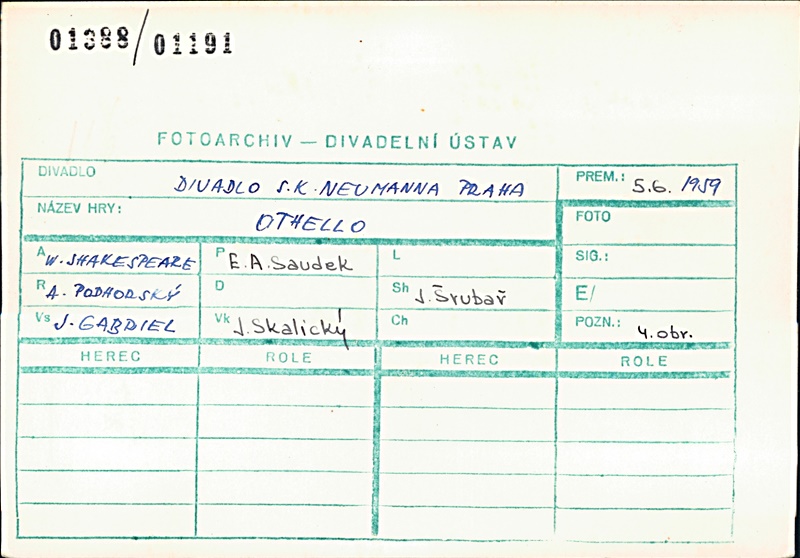 01388/01191
FOTOARCHIV — DIVADELNÍ ÚSTAV
DIVADLO DIVADLO S.K. NEUMANNA PRAHA PREM.: 5.6. 1959
NÁZEV HRY: OTHELLO FOTO
A W. SHAKESPEARE P E.A. Saudek L SIG.:
R A. PODHORSKÝ D Sh J. Šrubař E/
Vs J. GABRIEL Vk J. Skalický Ch POZN.: 4. obr.
HEREC ROLE HEREC ROLE